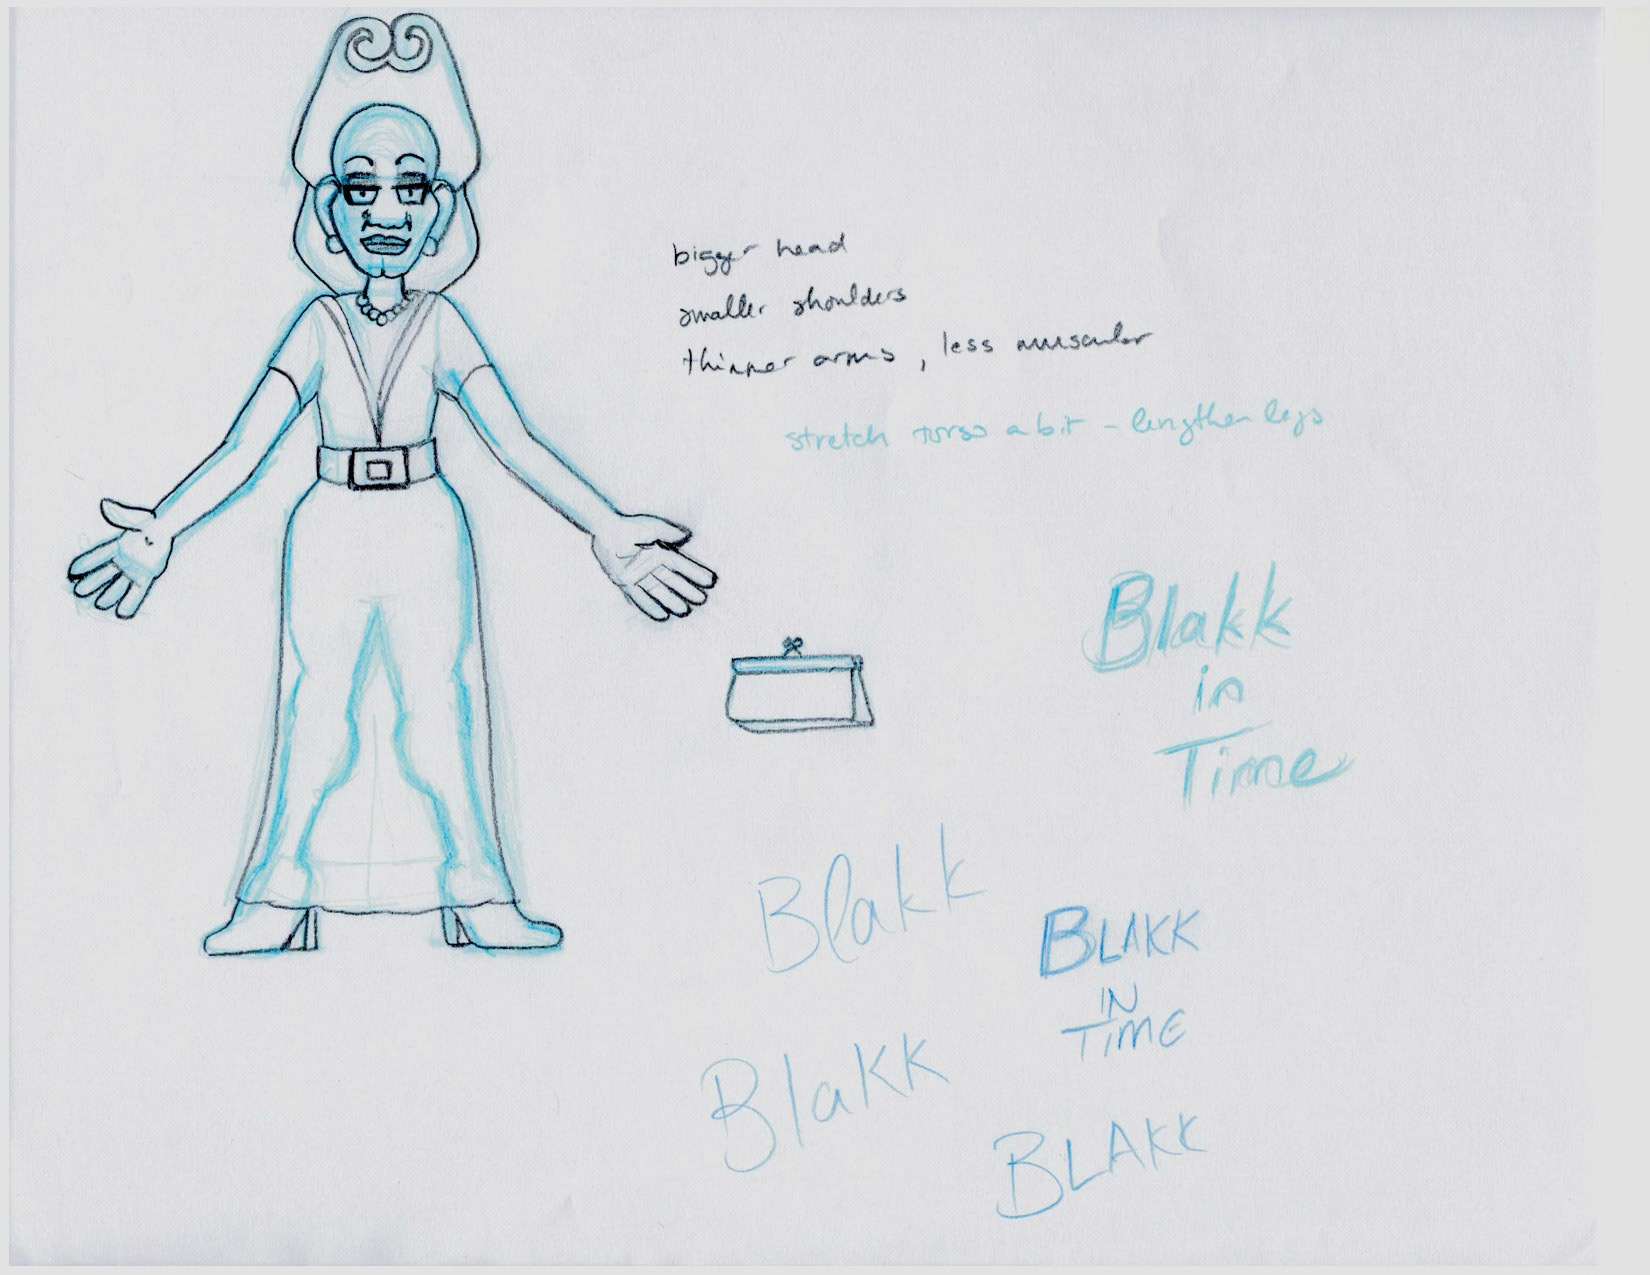 bigger head
smaller shoulders
thinner arms, less muscular
stretch torso a bit - lengthen legs
Blakk
in
Time
Blakk
BLAKK
IN
TIME
Blakk
BLAKK